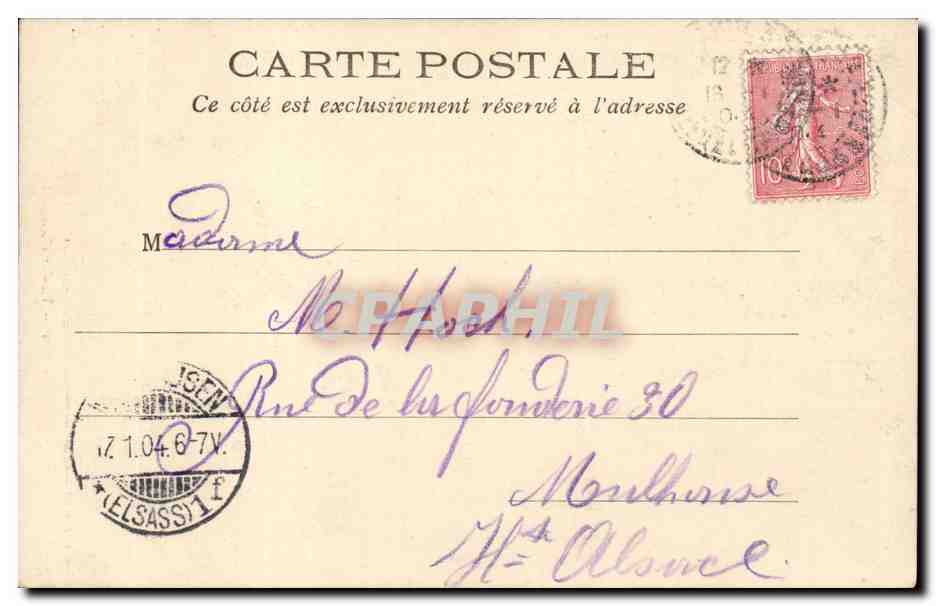 CARTE POSTALE
Ce côté est exclusivement réservé à l'adresse
RÉPUBLIQUE FRANÇAISE
10
Madame
M Hoch.
CPAPHIL
Rue de la fonderie 30
USEN
17.1.04.6-7V.
*(ELSASS)1f
Mulhouse
Hte Alsace